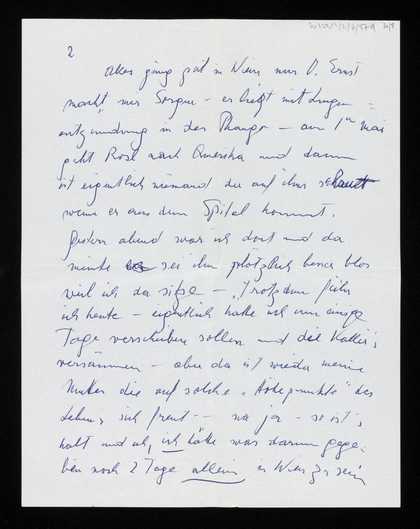 2
alles ging gut in Wien nur O. Ernst
macht mir Sorgen – er liegt mit Lungen =
entzündung in der – am 1ten Mai
geht Rosl nach Amerika und dann
ist eigentlich niemand der auf ihn schaut
wenn er aus dem Spital kommt.
Gestern abend war ich dort und da
meinte er sei ihm plötzlich besser blos
weil ich da sitze – Trotzdem fuhr
ich heute – eigentlich hätte ich um einige
Tage verschieben sollen und die
versäumen – aber da ist wieder meine
Mutter die auf solche „Höhepunkte" des
Lebens sich freut – na ja – so ist's
halt und ich, ich hätte was darum gege-
ben noch 2 Tage allein in Wien zu sein